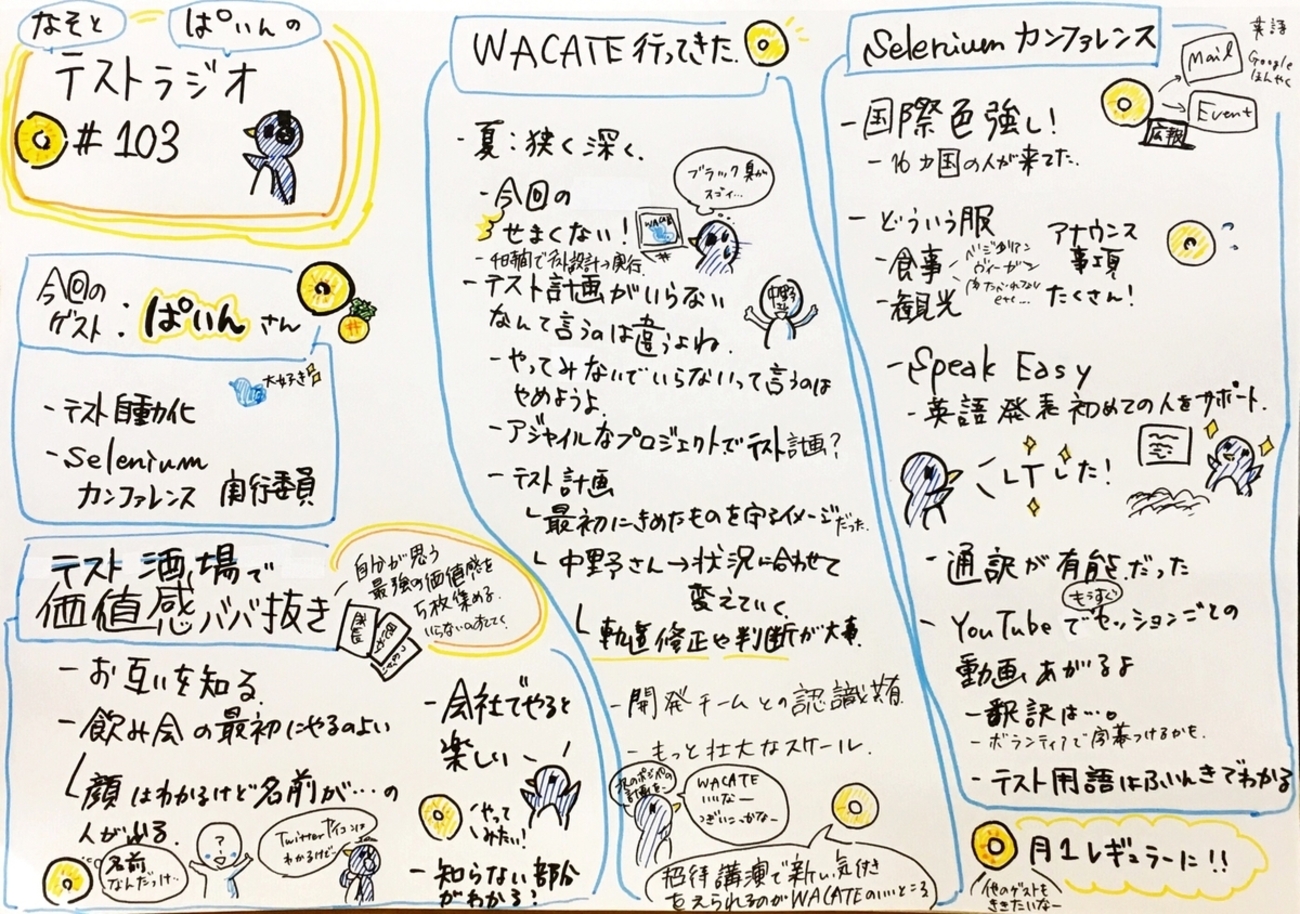 なそと ぱいんの
テストラジオ
#103
今回の
ゲスト : ぱいん さん
大好き
- テスト自動化
- Selenium
カンファレンス 実行委員
テスト酒場で
価値感ババ抜き
自分が思う
最強の価値感を
5枚集める.
いらないの捨ててく
成長
- お互いを知る.
- 飲み会の最初にやるのよい
顔はわかるけど名前が…の
人がいる.
名前
なんだっけ…
?
Twitterアイコンは
わかるけど…
- 会社でやると
楽しい
やって
みたい!
- 知らない部分
がわかる?
WACATE 行ってきた.
- 夏:狭く深く.
- 今回の
せまくない!
- 4日間でテスト設計→実行.
ブラック臭が
スゴイ…
WACATE
- テスト計画がいらない
なんて言うのは違うよね.
中野
さん
- やってみないでいらないって言うのは
やめようよ.
- アジャイルなプロジェクトでテスト計画?
- テスト計画
最初にきめたものを守るイメージだった.
中野さん→状況に合わせて
変えていく.
軌道修正や判断が大事.
- 開発チームとの認識共有.
- もっと壮大なスケール.
WACATE
いいなー
つぎいこっかなー
招待講演で新しい気付き
をえられるのがWACATEのいいところ
Selenium カンファレンス
英語
Google
ほんやく
Mail
Event
広報
- 国際色強し!
- 16カ国の人が来てた.
- どういう服
- 食事
ベジタリアン
ヴィーガン
etc...
- 観光
アナウンス
事項
たくさん!
- Speak Easy
- 英語発表初めての人をサポート.
LTした!
- 通訳が有能だった
もうすぐ
- YouTubeでセッションごとの
動画あがるよ
- 翻訳は…。
- ボランティアで字幕つけるかも.
- テスト用語はふいんきでわかる
月1レギュラーに!!
他のゲストも
ききたいなー